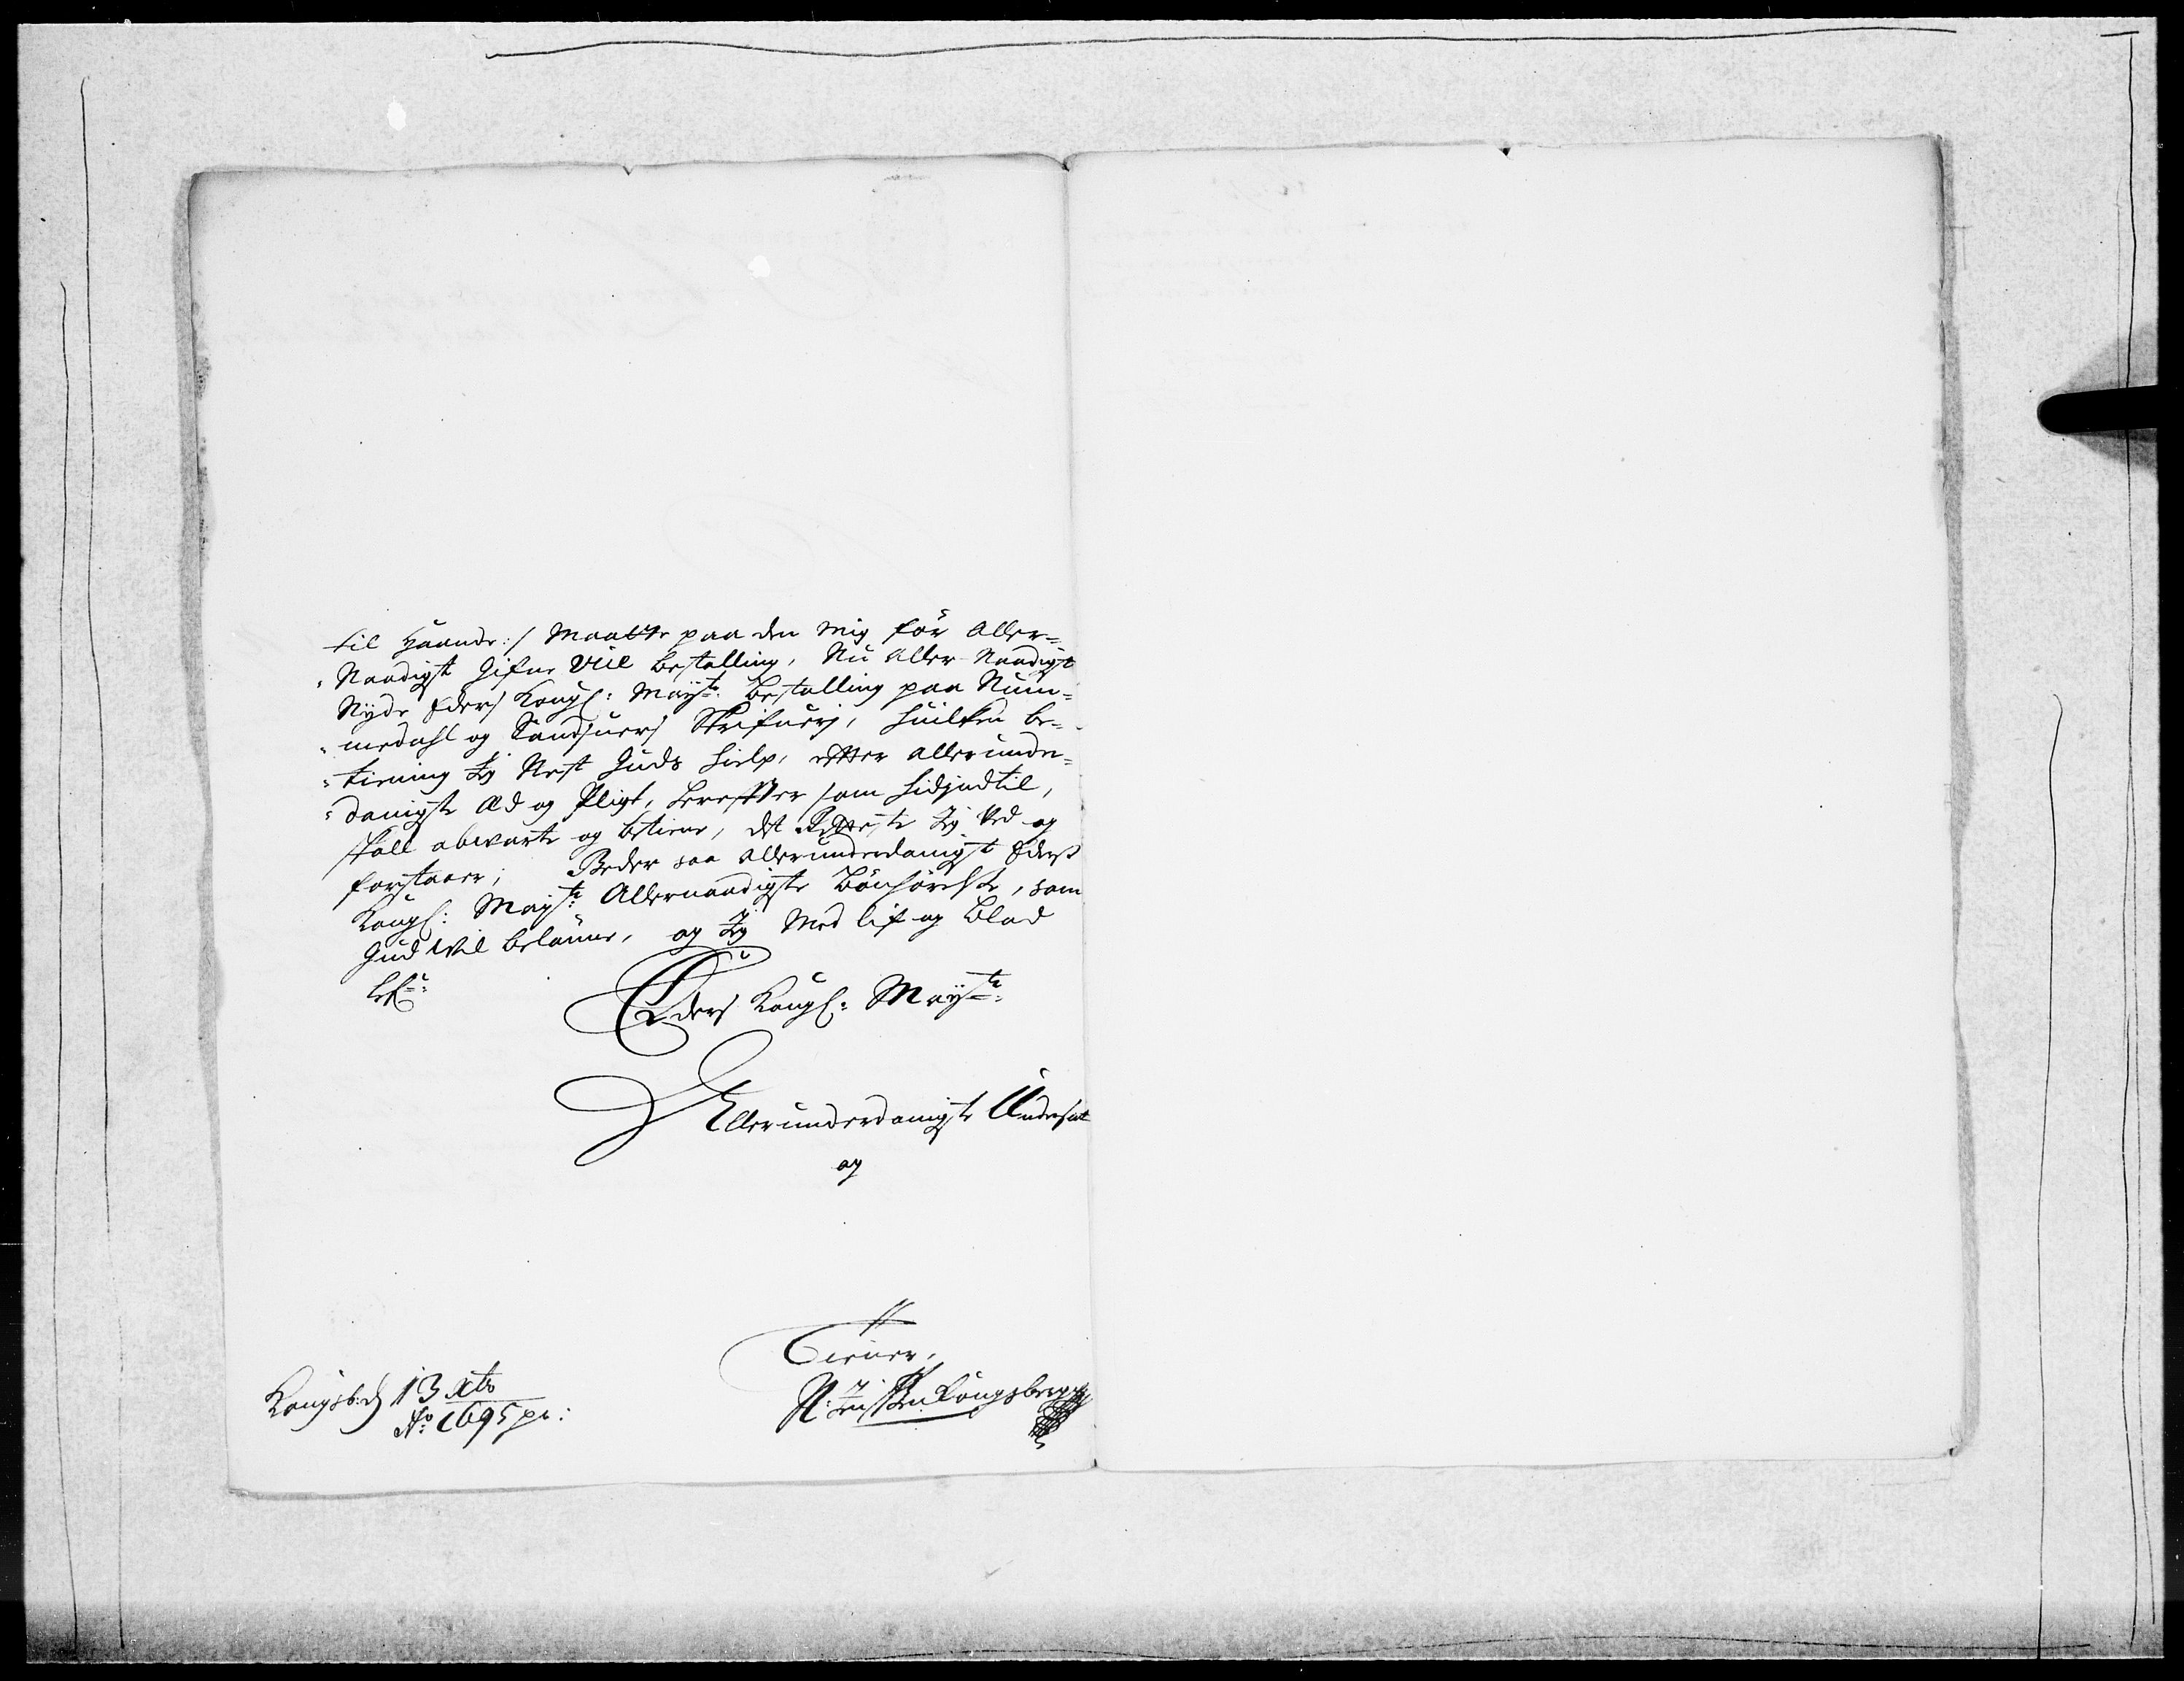 til Haande :/ Maatte paa den mig för Aller-
Naadigst Gifne Vice Bestalling, Nu Aller-Naadigst
Nyde Eders Kongl: Mayts: Bestalling paa Num-
medahl og Sandsuers Skrifueri, huilken be-
tiening Jeg Nest Guds hielp, effter allerunde-
danigste Æd og Pligt, herefter som hidindtil,
skall abwarte og betiene, det Retteste Jeg Ved og
forstaaer; Beder saa allerunderdanigst Eders
Kongl: Mayts: Allernaadigste Bönhörelse, som
Gud Wil belönne, og Jeg Med lif og Blod
Eders Kongl: Mayts:
Allerunderdanigste Undersat
og
Tiener,
Kongsb: d 13 Xbr
Ao: 1695 pr:
N: Kongsberg